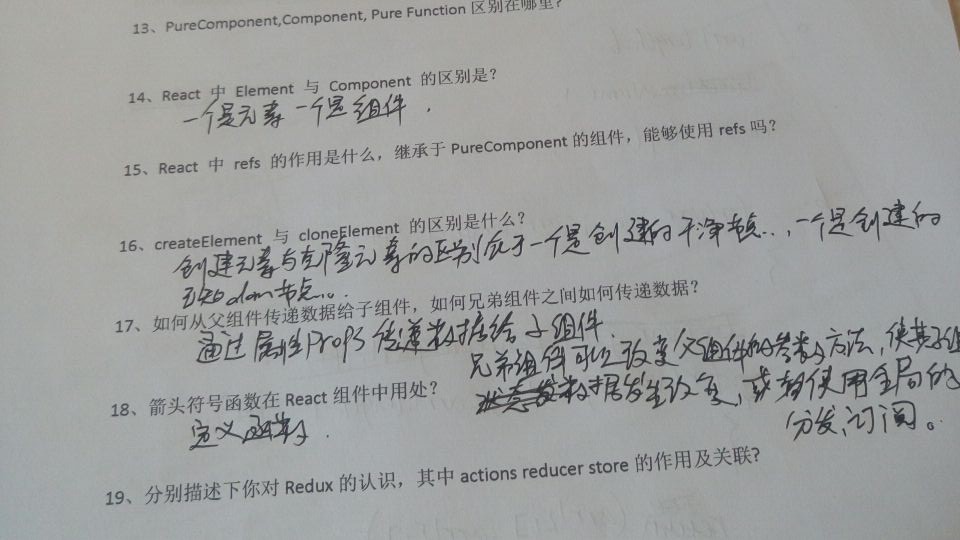 13、PureComponent,Component, Pure Function 区别在哪里?
14、React 中 Element 与 Component 的区别是?
一个是元素 一个是组件.
15、React 中 refs 的作用是什么，继承于 PureComponent 的组件，能够使用 refs 吗?
16、createElement 与 cloneElement 的区别是什么?
创建元素与克隆元素的区别在于一个是创建的干净节点..,一个是创建的
dom节点...
17、如何从父组件传递数据给子组件，如何兄弟组件之间如何传递数据?
通过属性Props传递数据给子组件.
兄弟组件可以改变父组件的参数方法,使其子组
数据发生改变,或者使用全局的
分发,订阅。
18、箭头符号函数在 React 组件中用处?
定义函数.
19、分别描述下你对 Redux 的认识，其中 actions reducer store 的作用及关联?